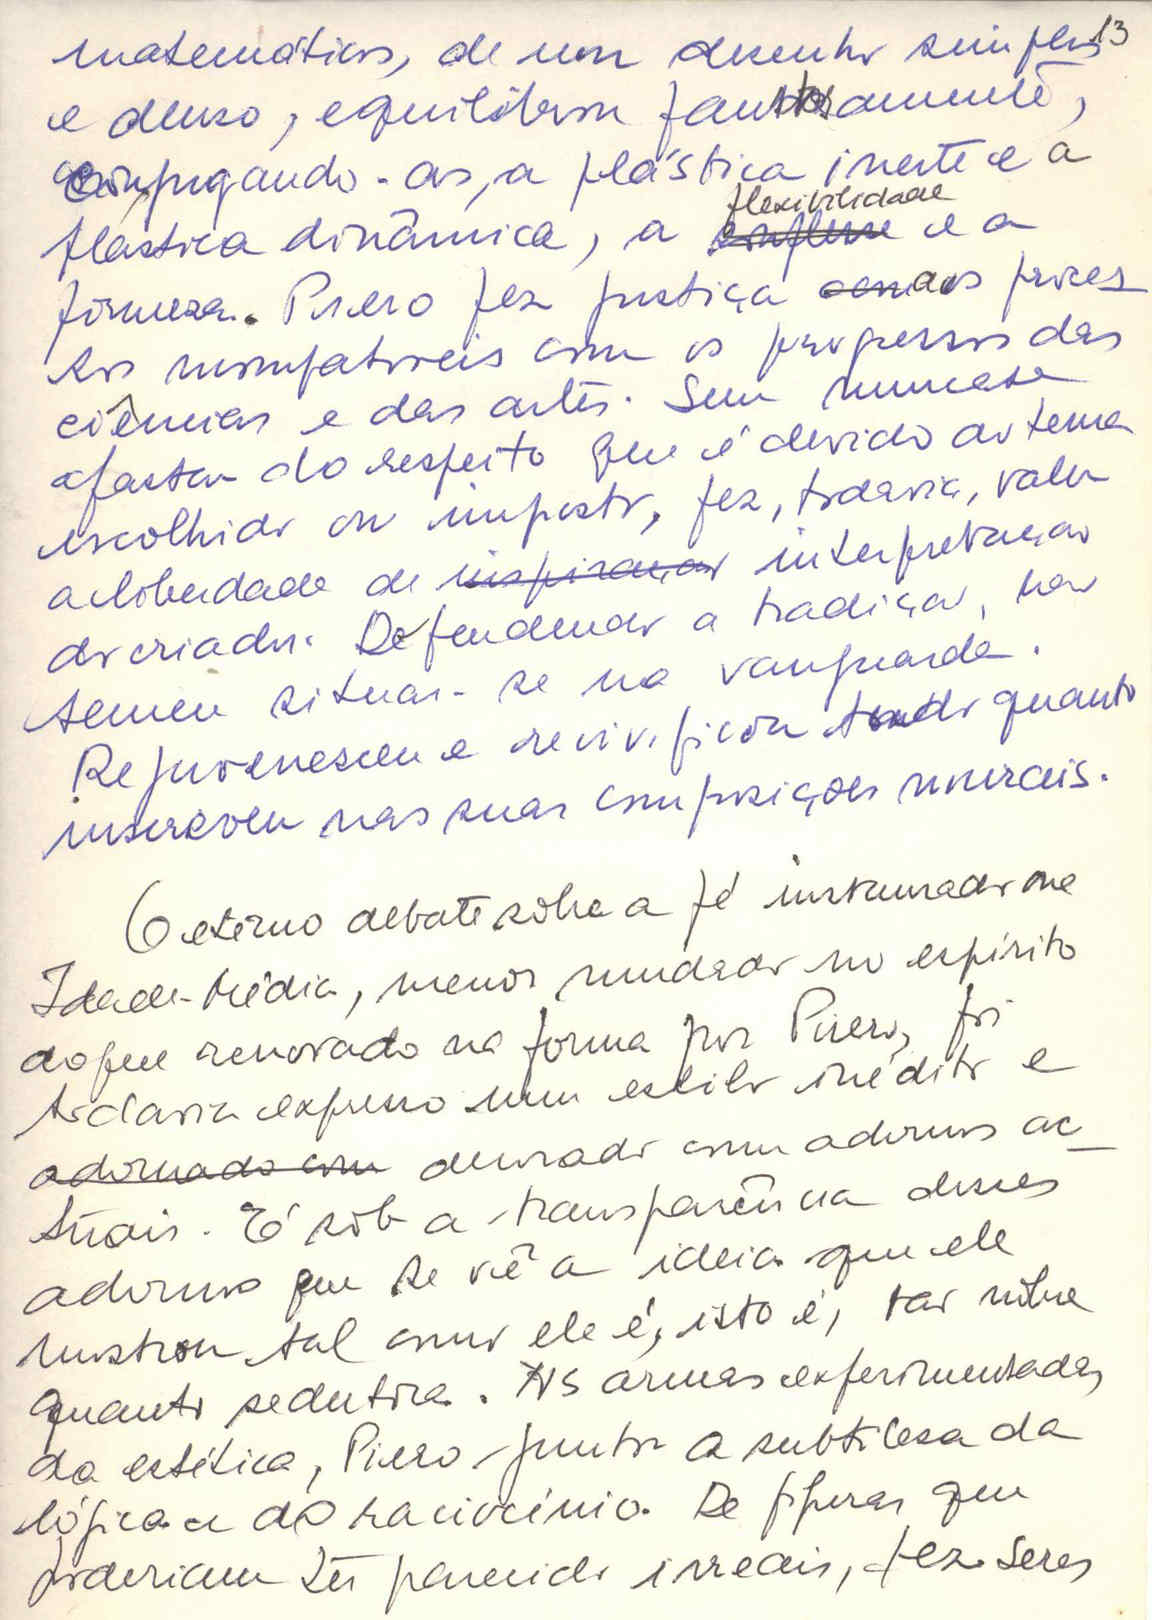 13
matemáticos, de um desenho simples
e denso, equilibrou faustosamente,
conjugando-as, a plástica inerte e a
plástica dinâmica, a flexibilidade e a
firmeza. Piero fez justiça aos precei-
tos incompatíveis com os progressos das
ciências e das artes. Sem nunca se
afastar do respeito que é devido ao tema
escolhido ou imposto, fez, todavia, valer
a liberdade de inspiração interpretação
do criador. Defendendo a tradição, não
temeu situar-se na vanguarda.
Rejuvenesceu e revivificou tudo quanto
inscreveu nas suas composições murais.
O eterno debate sôbre a fé instaurado na
Idade-Média, menos mudado no espírito
do que renovado na forma por Piero, foi
todavia expresso num estilo inédito e
adornado com decorado com adornos ac-
tuais. É sob a transparência desses
adornos que se vê a ideia que ele
mostrou tal como ele é, isto é, tão nobre
quanto sedutora. Às armas experimentadas
da estética, Piero juntou a subtileza da
lógica e do raciocínio. De figuras que
poderiam ter parecido irreais, fez seres